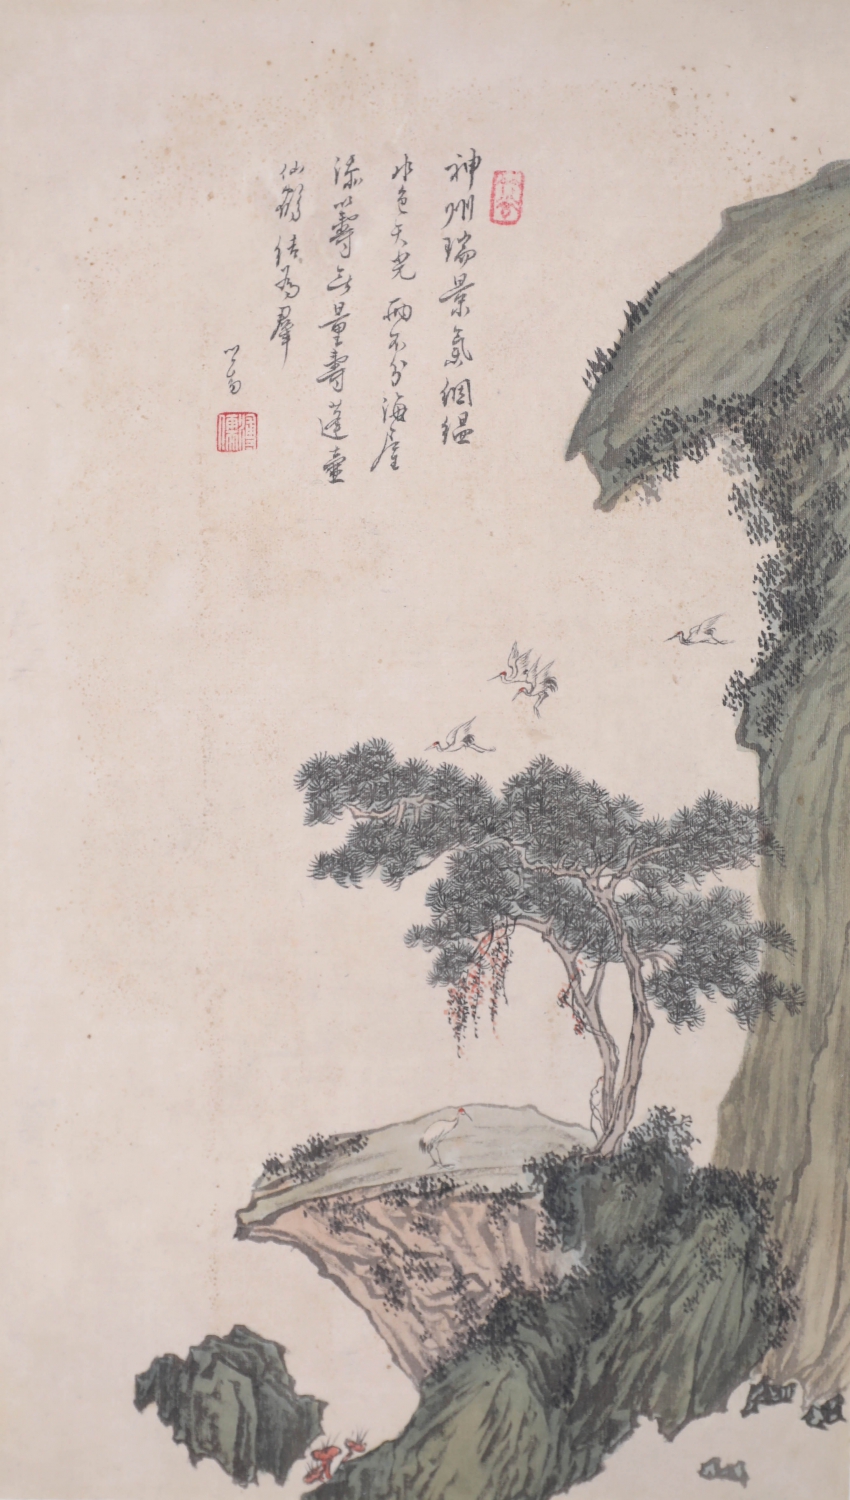 神州瑞景氣絪縕
水色天光兩不分海屋
添籌無量壽蓬壺
仙鶴結為群
心畬
溥儒